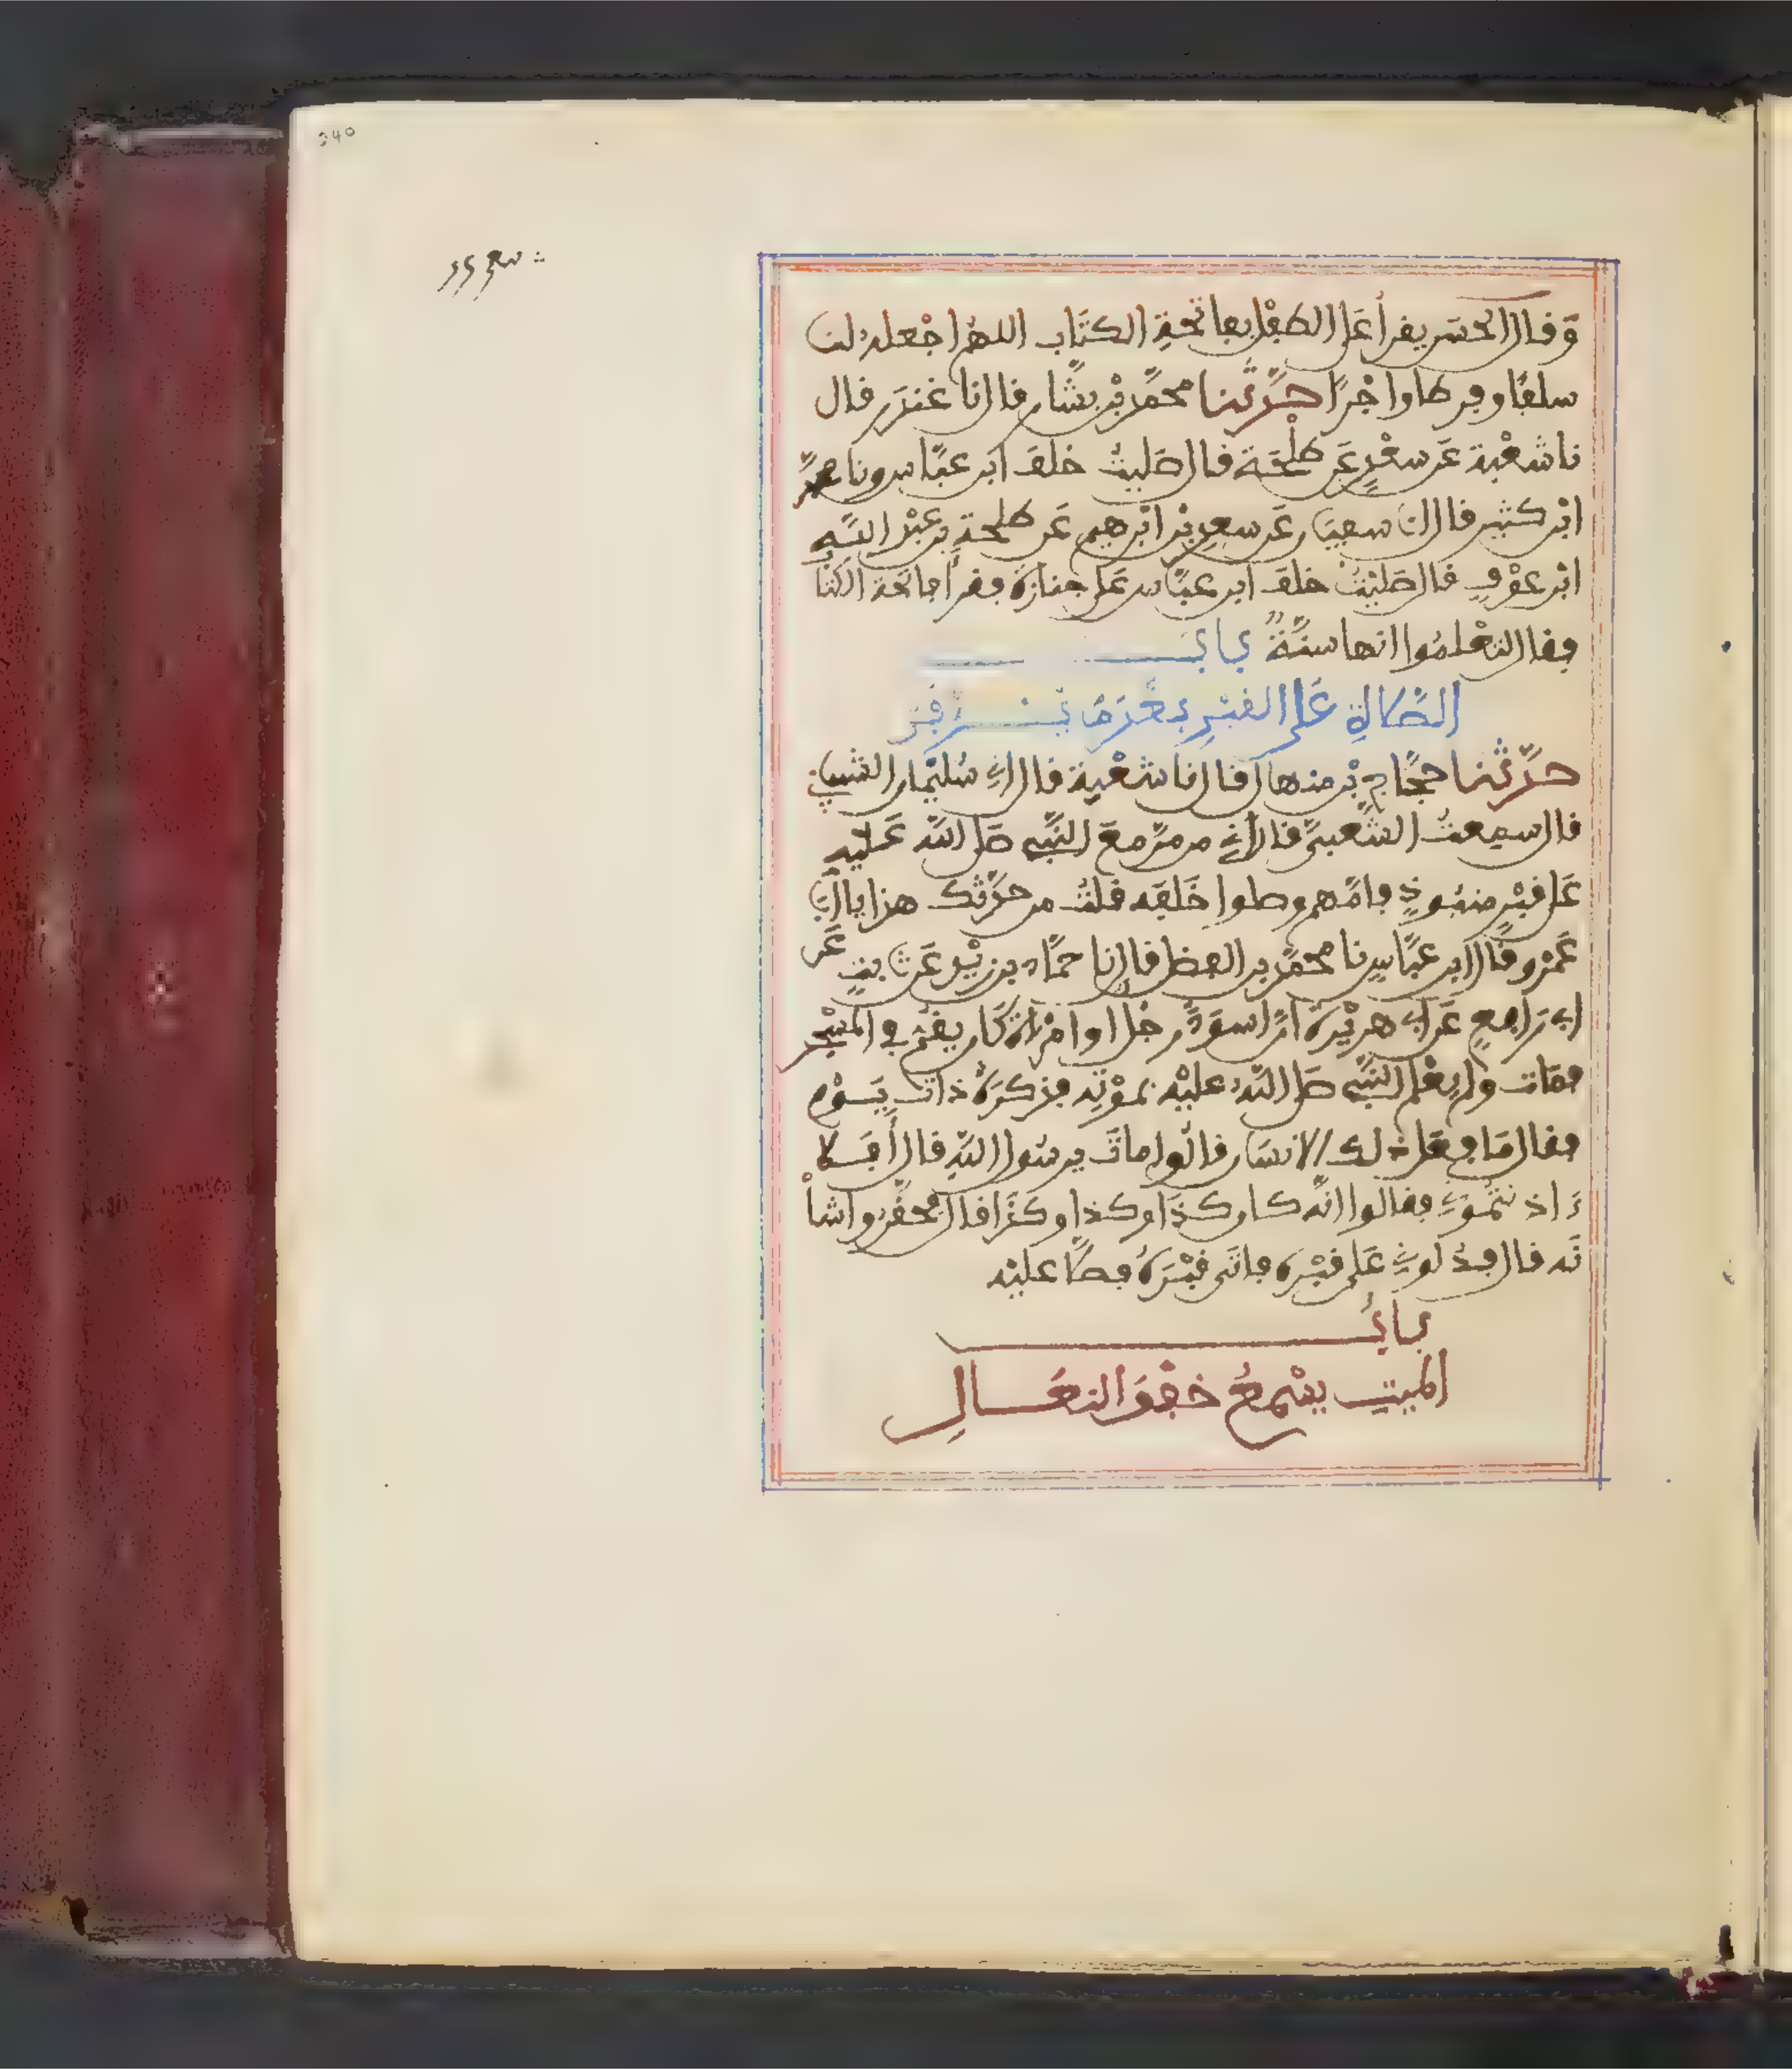 وَقال الحسن يقرأ عَلى الطفْل بفاتحةِ الكتَاب اللهمّ اجْعله لنا
سلفًا وفرطا واجْرًا حدّثنا محمّد بْن بشّار قال نا غندَر قال
نا شعْبة عَن سعْدٍ عَن طلْحَة قال صَليتُ خلفَ ابن عبّاس ونا محمّد
ابْن كثير قال انا سفيَان عَن سعدِ بْن ابْرهيم عَن طلحةَ بن عبْد اللهِ
ابْن عوْفٍ قال صَليْتُ خلفَ ابن عبّاس عَلى جنازةٍ فقرأ فاتحة الكتا
فقال لتعْلمُوا انها سنّةٌ بابُ
الصّلاةِ عَلى القبْرِ بعْدَمَا يُدْفَنُ
حدّثنا حجّاج بْن منهال قال نا شعْبة قال اني سُليْمان الشيبان
قال سمعتُ الشّعبيّ قال اني من مرّ معَ النّبي صَلى الله عَليه
عَلى قبْرٍ منبُوذٍ فامّهم وصلوا خَلفَه قلتُ من حدّثك هذا يابا
عَمْرو قال ابن عبّاسٍ نا محمّد بن الفضل قال نا حمّاد بن زيْد عَن ثابتٍ عَن
ابي رَافعٍ عَن ابي هريْرة انّ اسوَدَ رجلا او امْرأة كَان يقمّ في المسْجد
فمَات ولم يعْلم النّبي صَلى اللهُ عليْه بموْتِه فذكرَهُ ذاتَ يَوْمٍ
فقال مَا فعَل ذلك الانسَان قالُوا ماتَ يرسُول اللهِ قال أفَلا
ءَاذنتمُوني فقالوا انّه كان كذَا وكذا وكذَا قال فحقّروا شأ
نَه قال فدُلوني عَلى قبْرِه فاتَى قبْرَهُ فصَلّا عليْه
بابُ
الميت يسْمعُ خفْقَ النعَالِ